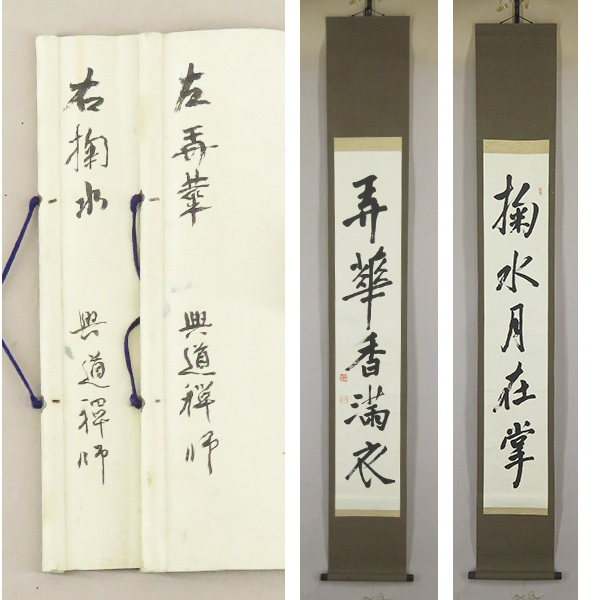 右掬水 興道禅師
左弄華 興道禅師
掬水月在掌
弄華香満衣